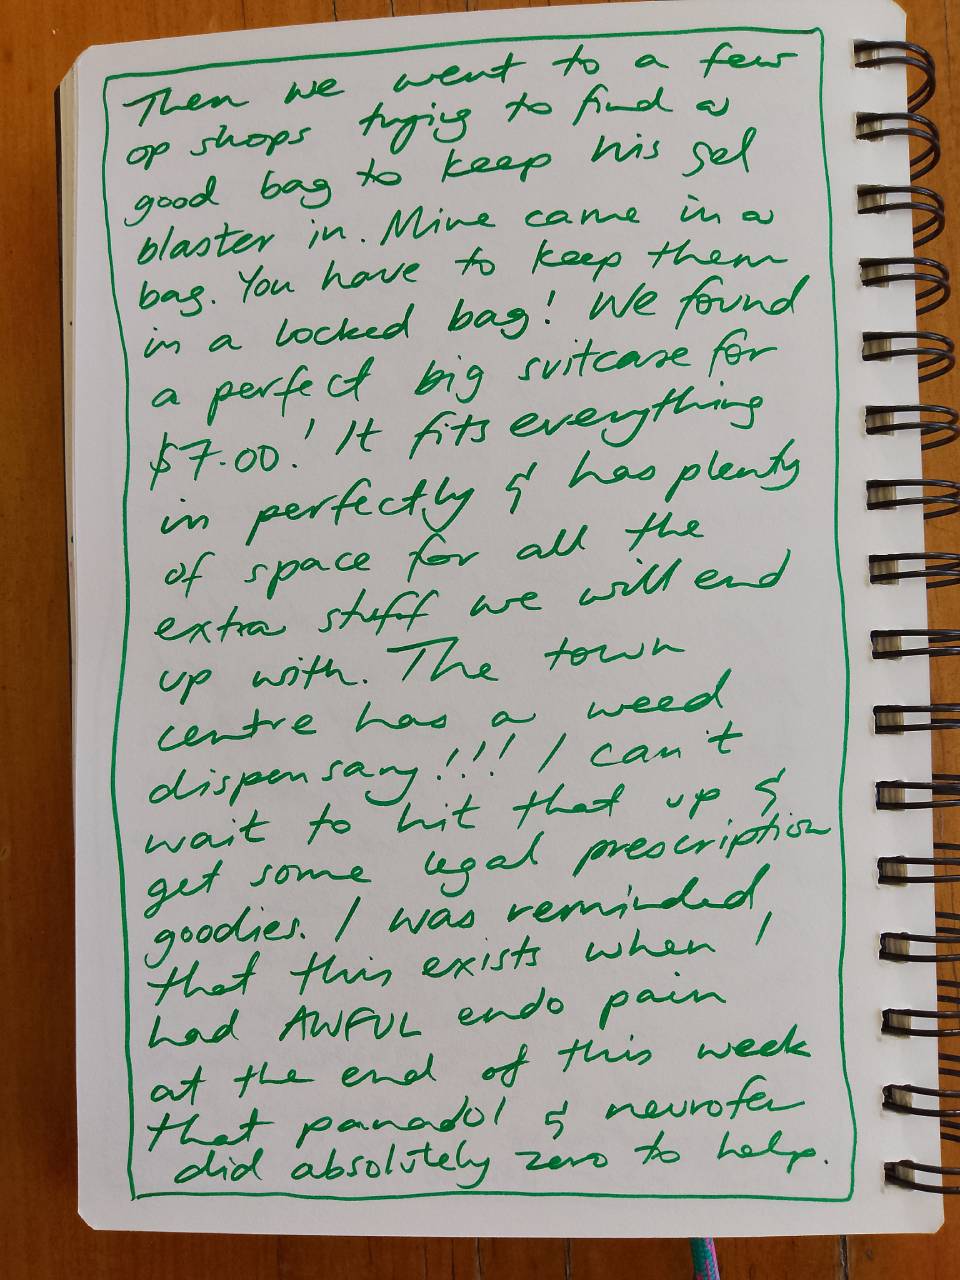 Then we went to a few
op shops trying to find a
good bag to keep his gel
blaster in. Mine came in a
bag. You have to keep them
in a locked bag! We found
a perfect big suitcase for
$7.00! It fits everything
in perfectly & has plenty
of space for all the
extra stuff we will end
up with. The town
centre has a weed
dispensary!!! I can't
wait to hit that up &
get some legal prescription
goodies. I was reminded
that this exists when I
had AWFUL endo pain
at the end of this week
that panadol & neurofen
did absolutely zero to help.